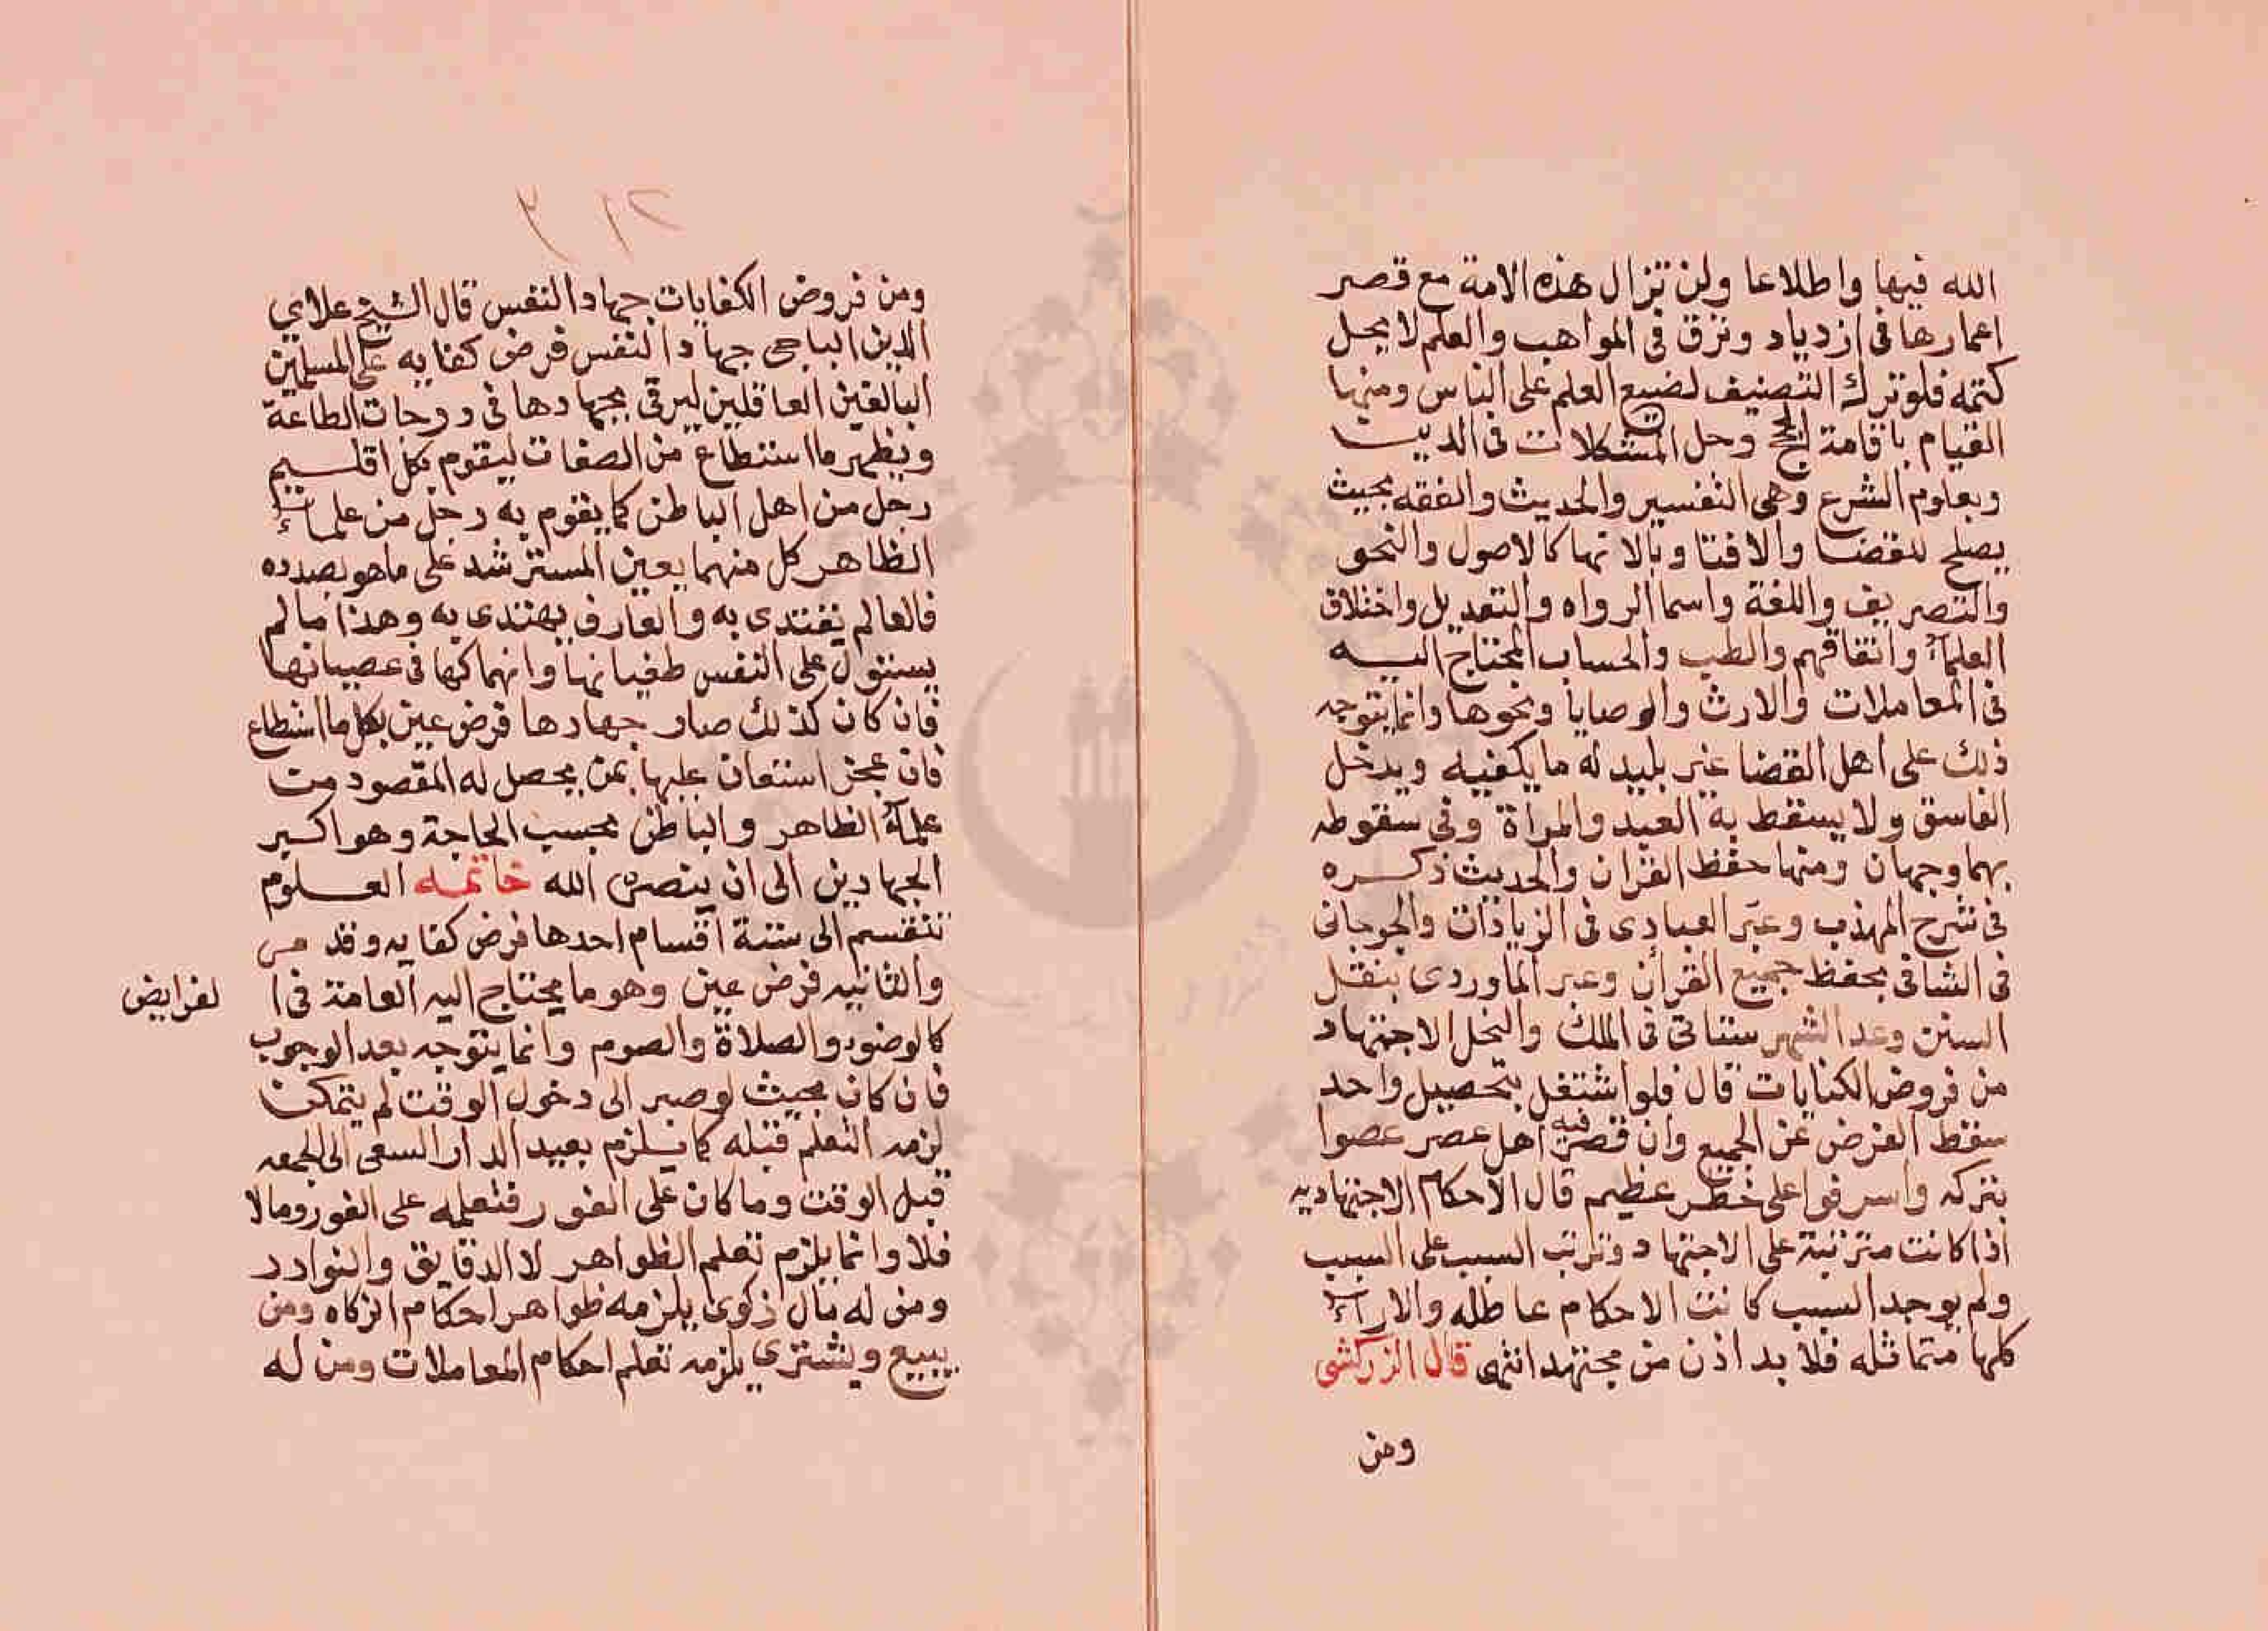 الله فيها واطلاعا ولن تزال هذه الامة مع قصر
اعمارها فى ازدياد وترق فى المواهب والعلم لا يحل
كتمه فلو ترك التصنيف لضيع العلم على الناس ومنها
القيام باقامة الحجج وحل المشكلات فى الدين
وبعلوم الشرع وهى التفسير والحديث والفقه بحيث
يصلح للقضا والافتا وبالاتها كالاصول والنحو
والتصريف واللغة واسما الرواه والتعديل واختلاف
العلمآء واتفاقهم والطب والحساب المحتاج اليه
فى المعاملات والارث والوصايا ونحوها وانما يتوجه
ذلك على اهل القضا غير بليد له ما يكفيه ويدخل
الفاسق ولا يسقط به العبد والمراة وفى سقوطه
بهما وجهان ومنها حفظ القران والحديث ذكره
فى شرح المهذب وعبر العبادى فى الزيادات والجرجانى
فى الشافى بحفظ جميع القران وعبر الماوردى بنقل
السنن وعد الشهرستانى فى الملل والنحل الاجتهاد
من فروض الكفايات قال فلو اشتغل بتحصيل واحد
سقط الفرض عن الجميع وان قصر فيه اهل عصر عصوا
بتركه واسرفوا على خطر عظيم قال الاحكام الاجتهاديه
اذا كانت مترتبة على الاجتهاد وترتب السبب على السبب
ولم يوجد السبب كانت الاحكام عاطله والارآء
كلها متماثله فلا بد اذن من مجتهد انتهى قال الزركشى
ومن
٢١٦
ومن فروض الكفايات جهاد النفس قال الشيخ علاى
الدين الباجى جهاد النفس فرض كفايه على المسلمين
البالغين العاقلين ليرقى بجهادها فى درجات الطاعة
ويظهر ما استطاع من الصفات ليقوم بكل اقليم
رجل من اهل الباطن كما يقوم به رجل من علمآء
الظاهر كل منهما يعين المسترشد على ما هو بصدده
فالعالم يقتدى به والعارف يهتدى به وهذا ما لم
يستول على النفس طغيانها وانهماكها فى عصيانها
فان كان كذلك صار جهادها فرض عين بكل ما استطاع
فان عجز استعان عليها بمن يحصل له المقصود من
علمآء الظاهر والباطن بحسب الحاجة وهو اكبر
الجهادين الى ان ينصره الله خاتمه العلوم
تنقسم الى ستة اقسام احدها فرض كفايه وقد مر
والثانيه فرض عين وهو ما يحتاج اليه العامة فى ا لفرايض
كالوضوء والصلاة والصوم وانما يتوجه بعد الوجوب
فان كان بحيث لو صبر الى دخول الوقت لم يتمكن
لزمه التعلم قبله كما يلزم بعيد الدار السعى الى الجمعه
قبل الوقت وما كان على الفور فتعلمه على الفور وما لا
فلا وانما يلزم تعلم الظواهر لا الدقايق والنوادر
ومن له مال زكوى يلزمه ظواهر احكام الزكاه ومن
يبيع ويشترى يلزمه تعلم احكام المعاملات ومن له